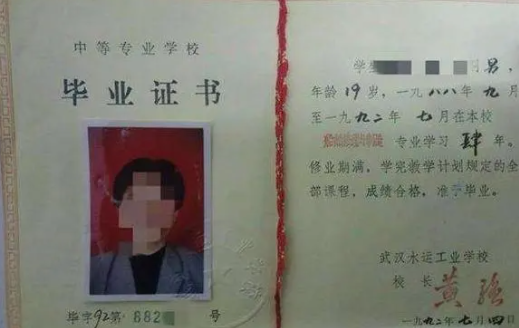 中等专业学校
毕业证书
毕字92第882 号
学生 男，
年龄19岁，一九八八年九月
至一九九二年七月在本校
专业学习肆年。
修业期满，学完教学计划规定的全
部课程，成绩合格，准予毕业。
武汉水运工业学校
校长 黄强
一九九二年七月四日